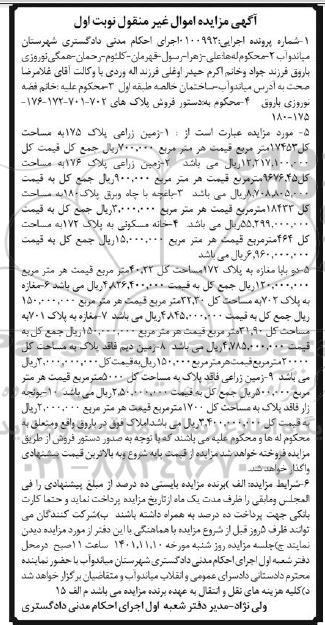 آگهی مزایده اموال غیر منقول نوبت اول
۱-شماره پرونده اجرایی:۰۱۰۰۹۹۲اجرای احکام مدنی دادگستری شهرستان
میاندوآب ۲-محکوم له‌ها:علی-زهرا-رسول-قهرمان-کلثوم-رحمان-همگی نوروزی
باروق فرزند جواد وخانم اکرم حیدر اوغلی فرزند اله وردی با وکالت آقای غلامرضا
صحت به آدرس میاندوآب-ساختمان خالصه طبقه اول ۳-محکوم علیه:خانم فضه
نوروزی باروق ۴-محکوم به:دستور فروش پلاک های ۷۰۲-۷۰۱-۱۷۲-۱۷۶-
۱۷۵-۱۸۰
۵- مورد مزایده عبارت است از : ۱-زمین زراعی پلاک ۱۷۵به مساحت
۱۷۴۵۳متر مربع قیمت هر متر مربع ۷۰۰,۰۰۰ریال جمع کل قیمت کل
۱۲,۲۱۷,۱۰۰,۰۰۰ریال می باشد ۲-زمین زراعی پلاک ۱۷۶به مساحت
کل۹۶۷۶,۴۵مترمربع قیمت هر متر مربع ۹۰۰,۰۰۰ریال جمع کل به قیمت
۸,۷۰۸,۸۰۵,۰۰۰ریال می باشد ۳-باغچه با چاه وبرق پلاک۱۸۰به مساحت
کل ۱۸۴۳۳مترمربع قیمت هر متر مربع ۳,۰۰۰,۰۰۰ریال جمع کل به قیمت
۵۵,۲۹۹,۰۰۰,۰۰۰ریال می باشد. ۴-خانه مسکونی به پلاک ۱۷۲به مساحت
کل ۴۶۴مترمربع قیمت هر متر مربع ۱۵,۰۰۰,۰۰۰ریال جمع کل به قیمت
۶,۹۶۰,۰۰۰,۰۰۰ریال می باشد
۵-دو بابا مغازه به پلاک ۱۷۲مساحت کل ۴۰,۲۲متر مربع قیمت هر متر مربع
۱۲۰,۰۰۰,۰۰۰ریال جمع کل به قیمت ۴,۸۲۶,۴۰۰,۰۰۰ریال می باشد ۶-مغازه
به پلاک ۷۰۲به مساحت کل ۳۲,۳۰متر مربع قیمت هر متر مربع ۱۵۰,۰۰۰,۰۰۰
ریال جمع کل به قیمت ۴,۸۴۵,۰۰۰,۰۰۰ریال می باشد ۷-مغازه به پلاک ۷۰۱به
مساحت کل ۳۱,۹۰متر مربع قیمت هر متر مربع ۱۵۰,۰۰۰,۰۰۰ریال جمع کل به
قیمت ۴,۷۸۵,۰۰۰,۰۰۰ریال می باشد. ۸-زمین دیم فاقد پلاک به مساحت کل
۲۰۰۰۰مترمربع قیمت هر متر مربع ۱۵۰,۰۰۰ریال به قیمت کل ۳,۰۰۰,۰۰۰,۰۰۰ریال
می باشد ۹-زمین زراعی فاقد پلاک به مساحت کل ۵۰۰۰متر مربع قیمت هر متر
مربع ۵۰۰,۰۰۰ریال جمع کل به قیمت ۲,۵۰۰,۰۰۰,۰۰۰ریال می باشد ۱۰-یونجه
زار فاقد پلاک به مساحت کل ۱۷۰۰مترمربع قیمت هر متر مربع ۲,۰۰۰,۰۰۰ریال
به قیمت کل ۳,۴۰۰,۰۰۰,۰۰۰ریال می باشد املاک فوق در باروق واقع ومتعلق به
محکوم له ها و محکوم علیه می باشند که با توجه به صدور دستور فروش از طریق
مزایده فروخته خواهد شد مزایده از قیمت پایه شروع وبه بالاترین قیمت پیشنهادی
واگذار خواهد شد.
۶-شرایط مزایده: الف )برنده مزایده بایستی ده درصد از مبلغ پیشنهادی را فی
المجلس ومابقی را ظرف مدت یک ماه از تاریخ مزایده پرداخت نماید و حتما کارت
بانکی جهت پرداخت ده درصد به همراه داشته باشند ب)شرکت کنندگان می
توانند ظرف ۵روز قبل از شروع مزایده با هماهنگی با این دفتر از مورد مزایده دیدن
نمایند ج)جلسه مزایده روز شنبه مورخه ۱۴۰۱,۱۱,۱۰ ساعت ۱۱صبح درمحل
دفتر شعبه اول اجرای احکام مدنی دادگستری شهرستان میاندوآب با حضور نماینده
محترم دادستانی دادسرای عمومی و انقلاب میاندوآب و متقاضیان برگزار خواهد شد
د)کلیه هزینه های نقل و انتقال به عهده برنده مزایده می باشد م الف ۱۵
ولی نژاد-مدیر دفتر شعبه اول اجرای احکام مدنی دادگستری